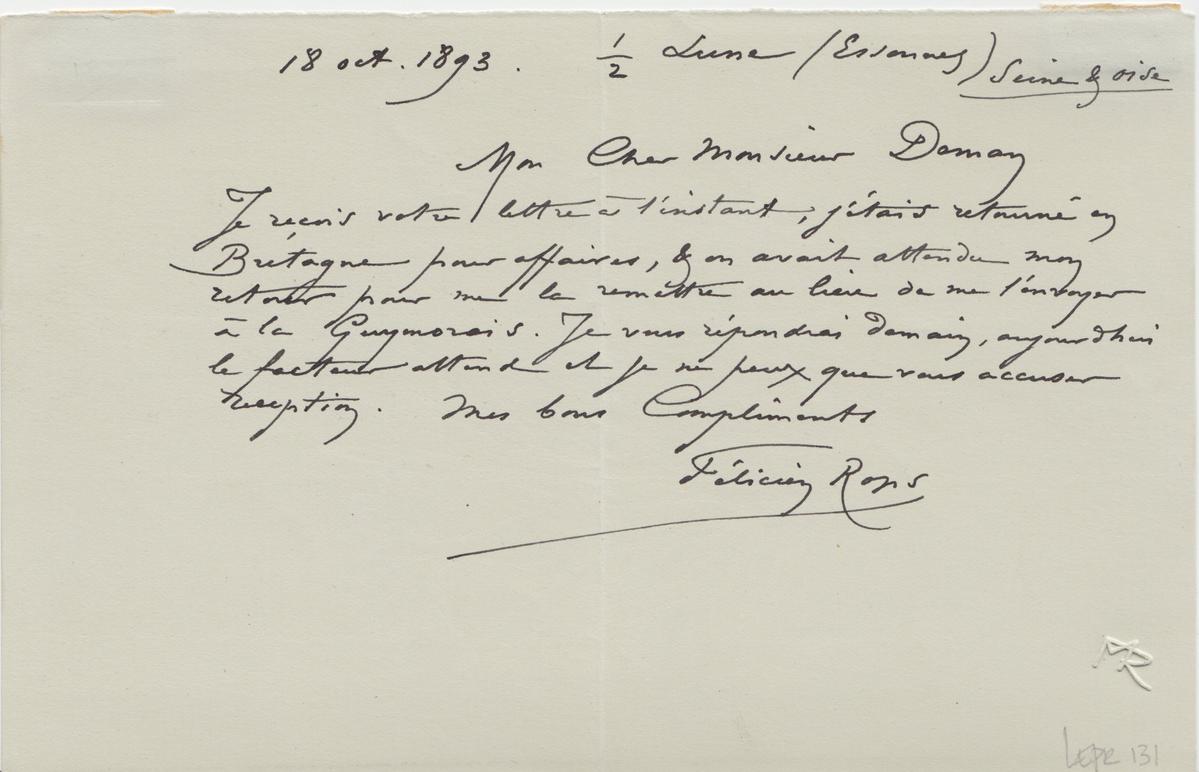 18 oct. 1893. 1/2 Lune (Essonnes) Seine & Oise
Mon Cher Monsieur Deman
Je reçois votre lettre à l'instant, j'étais retourné en
Bretagne pour affaires, & on avait attendu mon
retour pour me la remettre au lieu de me l'envoyer
à la Guymorais. Je vous répondrai demain, aujourd'hui
le facteur attend et je ne peux que vous accuser
reception. Mes bons Compliments
Félicien Rops
LEPR 131